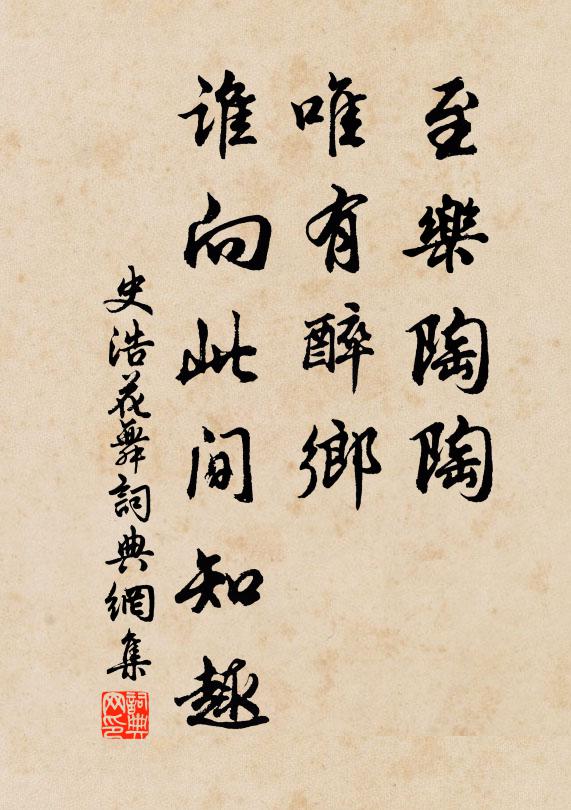 至樂陶陶
唯有醉鄉
誰向此間知趣
史浩花舞詞典網集
詞典网印